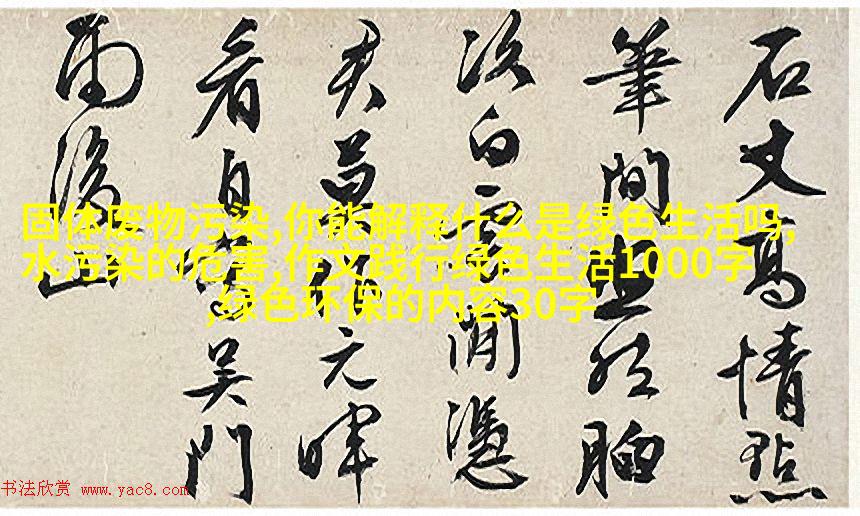 石丈高情點
筆間然胸
次白雲閒憑
君莫作元暉
看自是吳門
雨後山
固体废物污染,你能解释什么是绿色生活吗,
水污染的危害,作文践行绿色生活1000字
,绿色环保的内容30字
书法欣赏 www.yac8.com